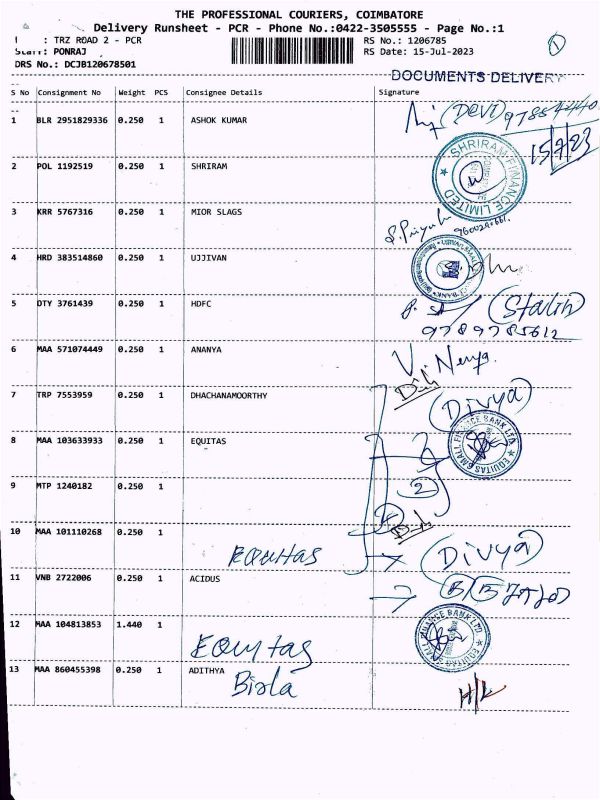 THE PROFESSIONAL COURIERS, COIMBATORE
Delivery Runsheet - PCR - Phone No.:0422-3505555 - Page No.:1
: TRZ ROAD 2 - PCR
RS No.: 1206785
Staff: PONRAJ
RS Date: 15-Jul-2023
DRS No.: DCJB120678501
1
DOCUMENTS DELIVERY
S No Consignment No Weight PCS Consignee Details Signature
1 BLR 2951829336 0.250 1 ASHOK KUMAR (DEVI)
15/7/23
2 POL 1192519 0.250 1 SHRIRAM SHRIRAM FINANCE LIMITED
3 KRR 5767316 0.250 1 MIOR SLAGS
4 HRD 383514860 0.250 1 UJJIVAN
5 DTY 3761439 0.250 1 HDFC (Stalin)
9789785612
6 MAA 571074449 0.250 1 ANANYA
7 TRP 7553959 0.250 1 DHACHANAMOORTHY (Divya)
8 MAA 103633933 0.250 1 EQUITAS EQUITAS SMALL FINANCE BANK LTD.
9 MTP 1240182 0.250 1 2
10 MAA 101110268 0.250 1
EQUITAS (Divya)
11 VNB 2722006 0.250 1 ACIDUS
12 MAA 104813853 1.440 1 EQUITAS SMALL FINANCE BANK LTD.
EQUITAS
13 MAA 860455398 0.250 1 ADITHYA
Birla